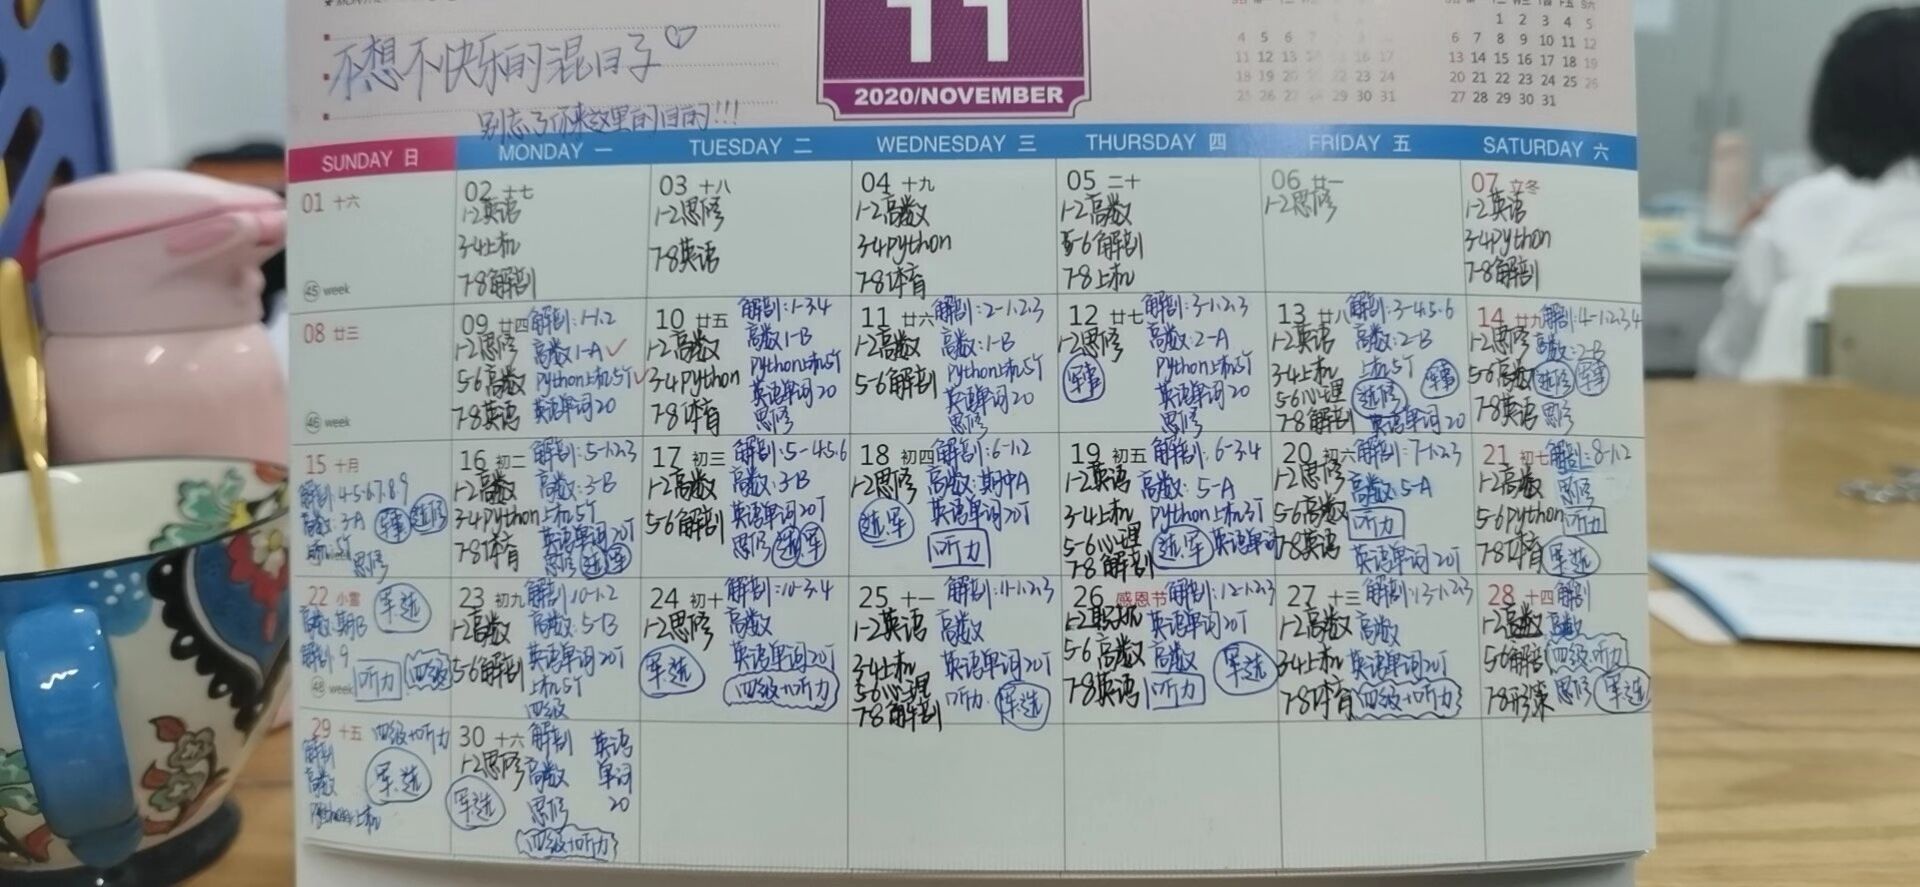 不想不快乐的混日子
别忘了你来这里的目的!!!
11
2020/NOVEMBER
4 5
11 12 13 16 17
18 19 20 22 23 24
25 26 29 30 31
1 2 3 4 5
6 7 8 9 10 11 12
13 14 15 16 17 18 19
20 21 22 23 24 25 26
27 28 29 30 31
SUNDAY 日 MONDAY 一 TUESDAY 二 WEDNESDAY 三 THURSDAY 四 FRIDAY 五 SATURDAY 六
01 十六
45 week
02 十七
1-2英语
3-4上机
7-8解剖
03 十八
1-2思修
7-8英语
04 十九
1-2高数
3-4python
7-8体育
05 二十
1-2高数
5-6解剖
7-8上机
06 廿一
1-2思修
07 立冬
1-2英语
3-4python
7-8解剖
08 廿三
46 week
09 廿四 解剖:1-1.2
1-2思修 高数1-A
5-6高数 python上机5T
7-8英语 英语单词20
10 廿五 解剖:1-3.4
1-2高数 高数1-B
3-4python python上机5T
7-8体育 英语单词20
思修
11 廿六 解剖:2-1.2.3
1-2高数 高数:1-B
5-6解剖 python上机5T
英语单词20
思修
12 廿七 解剖:3-1.2.3
1-2思修 高数:2-A
军事 python上机5T
英语单词20
思修
13 廿八 解剖:3-4.5.6
1-2英语 高数:2-B
3-4上机 上机5T 军事
5-6心理 选修
7-8解剖 英语单词20
14 廿九 解剖:4-1.2.3.4
1-2思修 高数:2-B
5-6高数 选修 军事
7-8英语 思修
15 十月
解剖:4-5.6.7.8.9
高数:3-A 军事 选修
思修
16 初二 解剖:5-1.2.3
1-2高数 高数:3-B
3-4python 上机5T
7-8体育 英语单词20T
思修 选军
17 初三 解剖:5-4.5.6
1-2高数 高数:3-B
5-6解剖 英语单词20T
思修 选军
18 初四 解剖:6-1.2
1-2思修 高数:期中A
选.军 英语单词20T
听力
19 初五 解剖:6-3.4
1-2英语 高数:5-A
3-4上机 python上机5T
5-6心理 选.军 英语单词
7-8解剖
20 初六 解剖:7-1.2.3
1-2思修 高数:5-A
5-6高数 听力
7-8英语 英语单词20T
21 初七 解剖:8-1.2
1-2高数 思修
5-6python 听力
7-8体育 军选
22 小雪 军选
高数:期B
解剖:9
48 week 听力 四级
23 初九 解剖:10-1.2
1-2高数 高数:5-B
5-6解剖 英语单词20T
上机5T
四级
24 初十 解剖:10-3.4
1-2思修 高数
军选 英语单词20T
四级+听力
25 十一 解剖:11-1.2.3
1-2英语 高数
3-4上机 英语单词20T
5-6心理 听力. 军选
7-8解剖
26 感恩节 解剖:12-1.2.3
英语单词20T
5-6高数 高数 军选
7-8英语 听力
27 十三 解剖:13-1.2.3
1-2高数 高数
3-4上机 英语单词20T
7-8体育 四级+听力
28 十四 解剖
1-2高数 高数
5-6解剖 四级.听力
7-8形策 思修 军选
29 十五 四级+听力
解剖
高数 军.选
python上机
30 十六 解剖 英语
1-2思修 高数 单词
军.选 思修 20
四级+听力